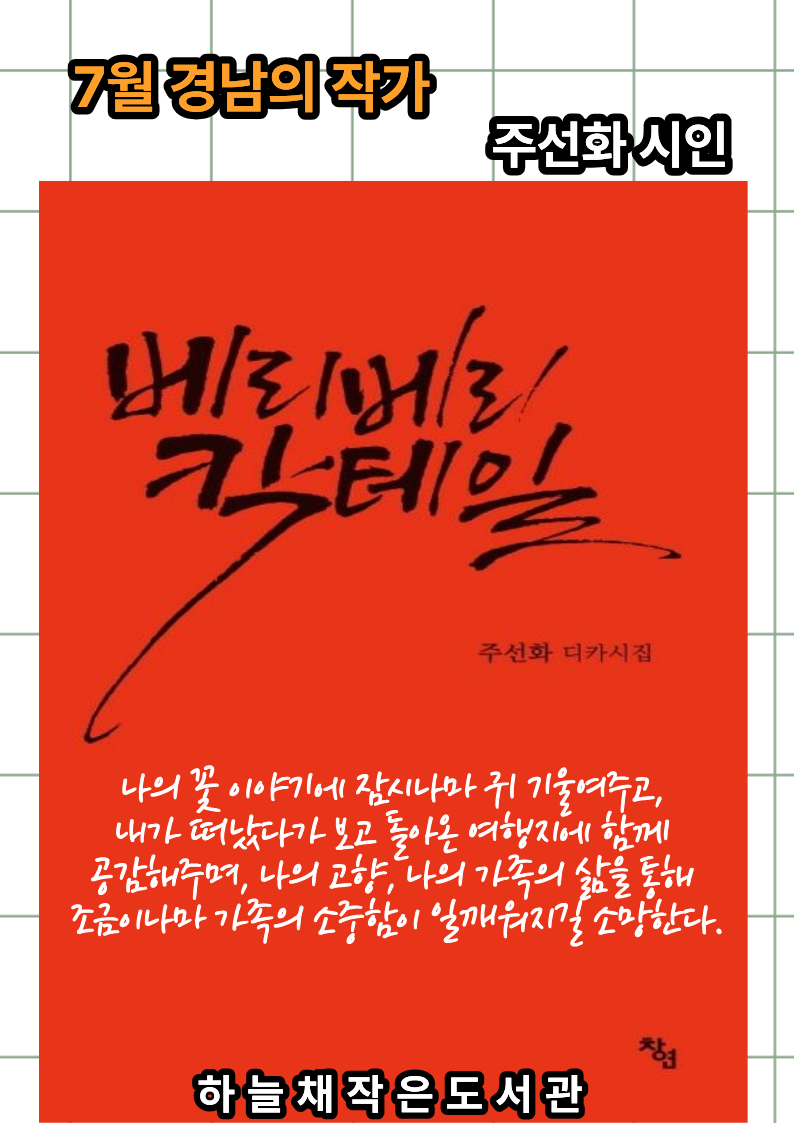 7월 경남의 작가
주선화 시인
베리베리
칵테일
주선화 디카시집
나의 꽃 이야기에 잠시나마 귀 기울여주고,
내가 떠났다가 보고 돌아온 여행지에 함께
공감해주며, 나의 고향, 나의 가족의 삶을 통해
조금이나마 가족의 소중함이 일깨워지길 소망한다.
창연
하늘채작은도서관